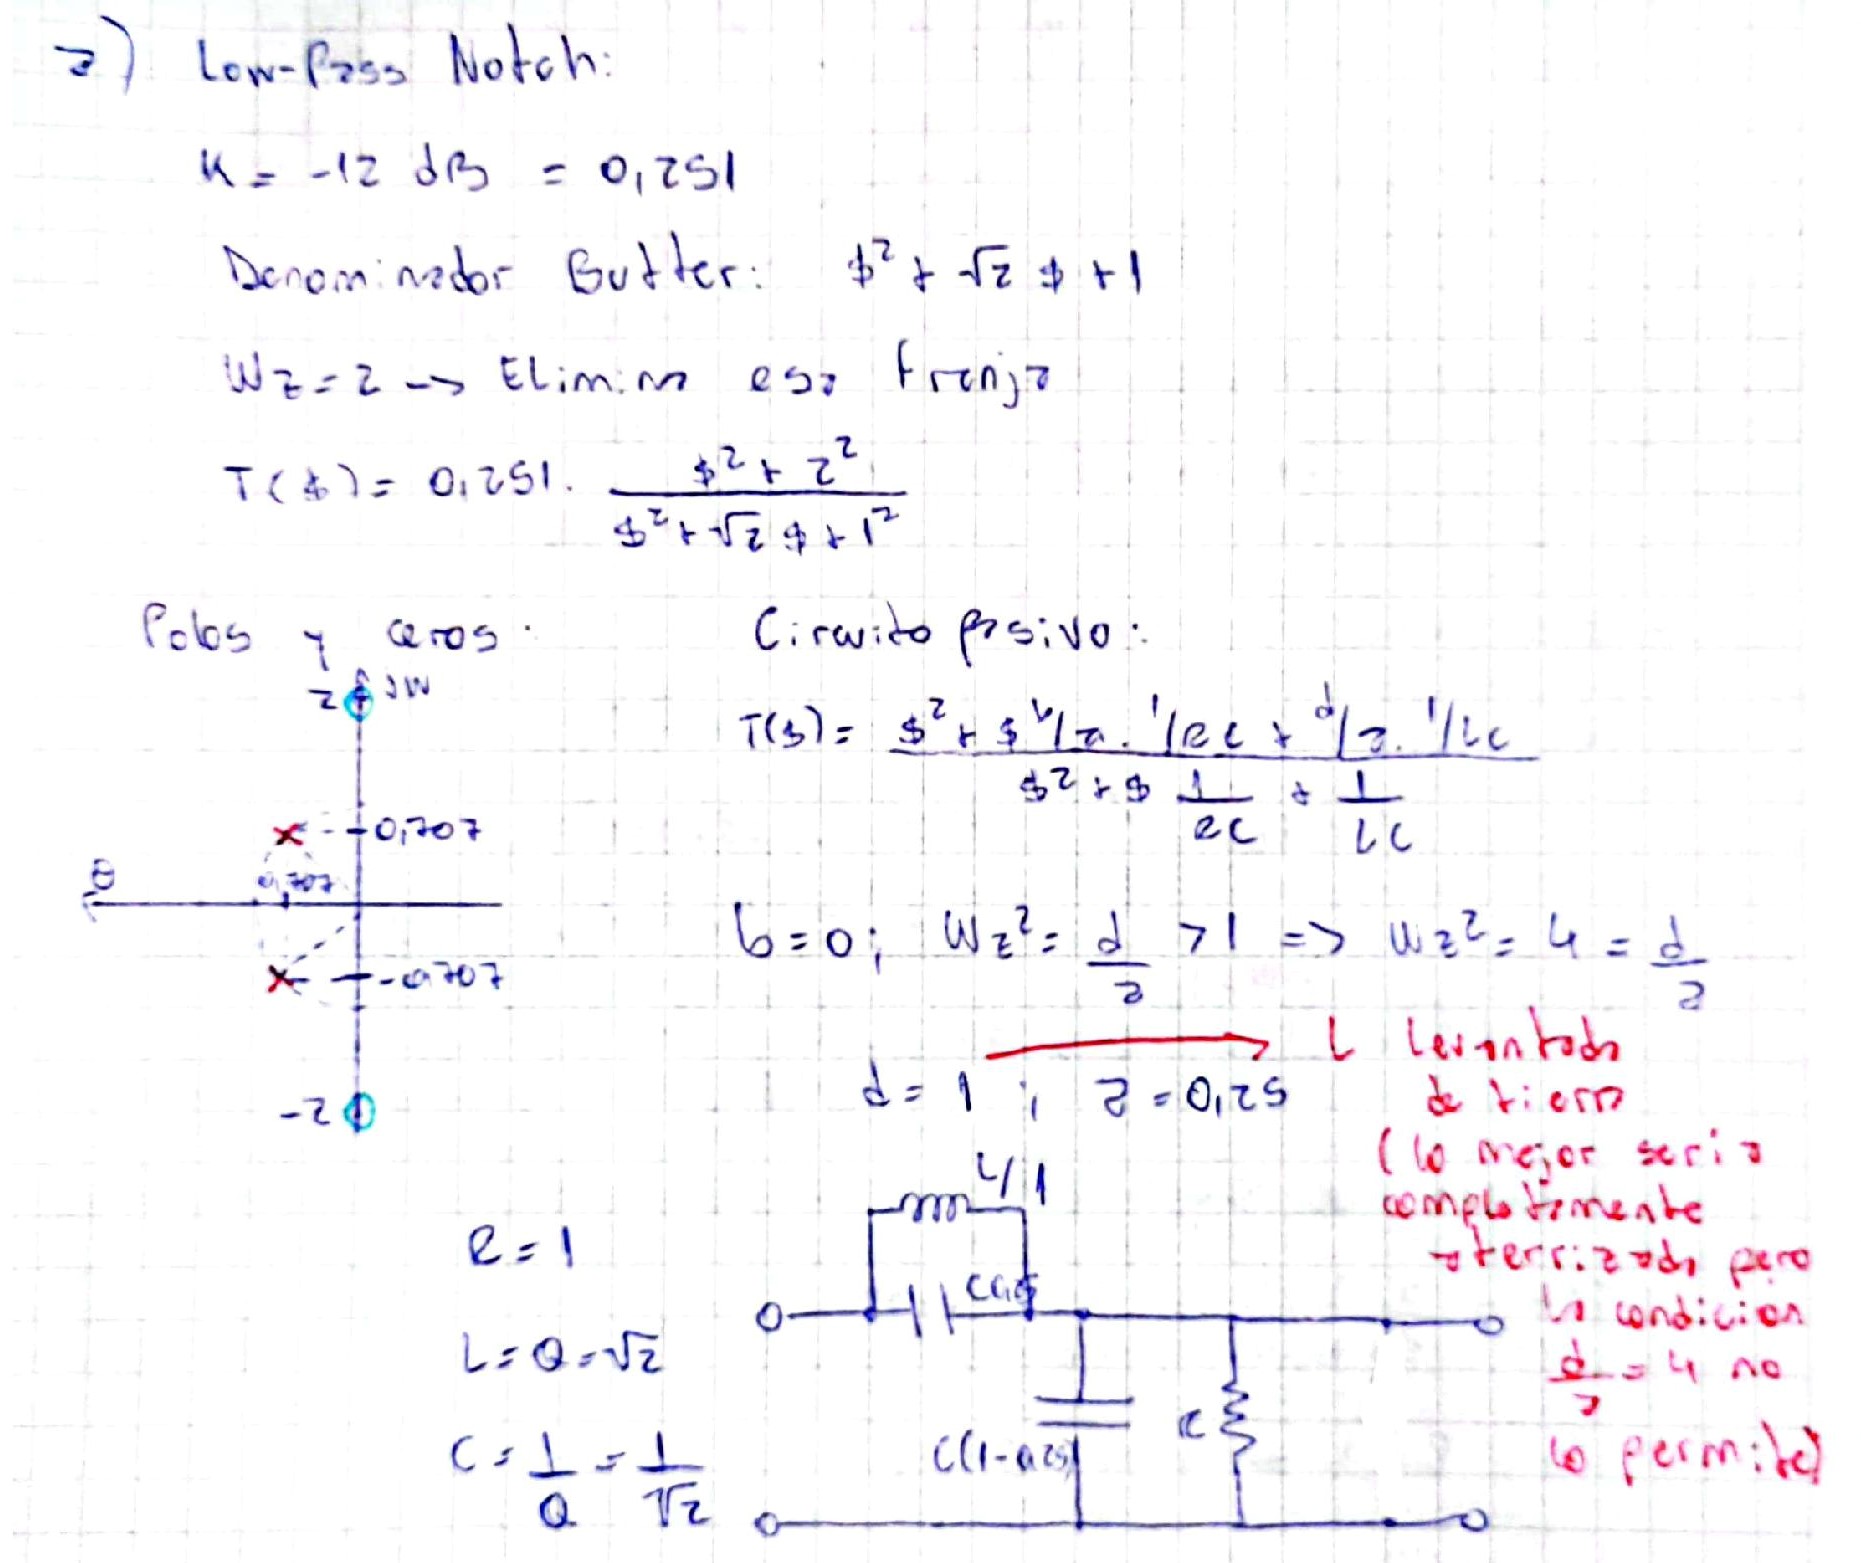 a) Low-Pass Notch:
K = -12 dB = 0,251
Denominador Butter: $² + √2 $ + 1
Wz = 2 -> Elimina esa franja
T($) = 0,251 . ($² + 2²) / ($² + √2 $ + 1²)
Polos y ceros:
2 jW
0,707
σ 0,707
-0,707
-2
Circuito pasivo:
T($) = ($² + $ b/a . 1/RC + d/a . 1/LC) / ($² + $ 1/RC + 1/LC)
b = 0; Wz² = d/a > 1 => Wz² = 4 = d/a
d = 1 ; a = 0,25
L levantado
de tierra
(lo mejor seria
completamente
aterrizado pero
la condicion
d/a = 4 no
lo permite)
R = 1
L = Q = √2
C = 1/Q = 1/√2
L/1
C(1-0,25)
R